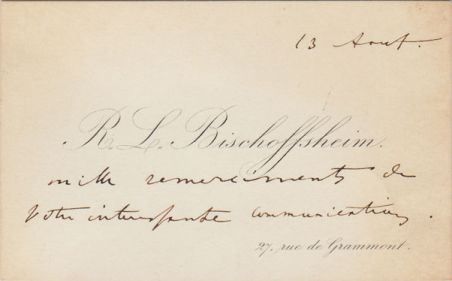 13 Aout.
R. L. Bischoffsheim.
mille remerciments de
votre intéressante communication.
27, rue de Grammont.